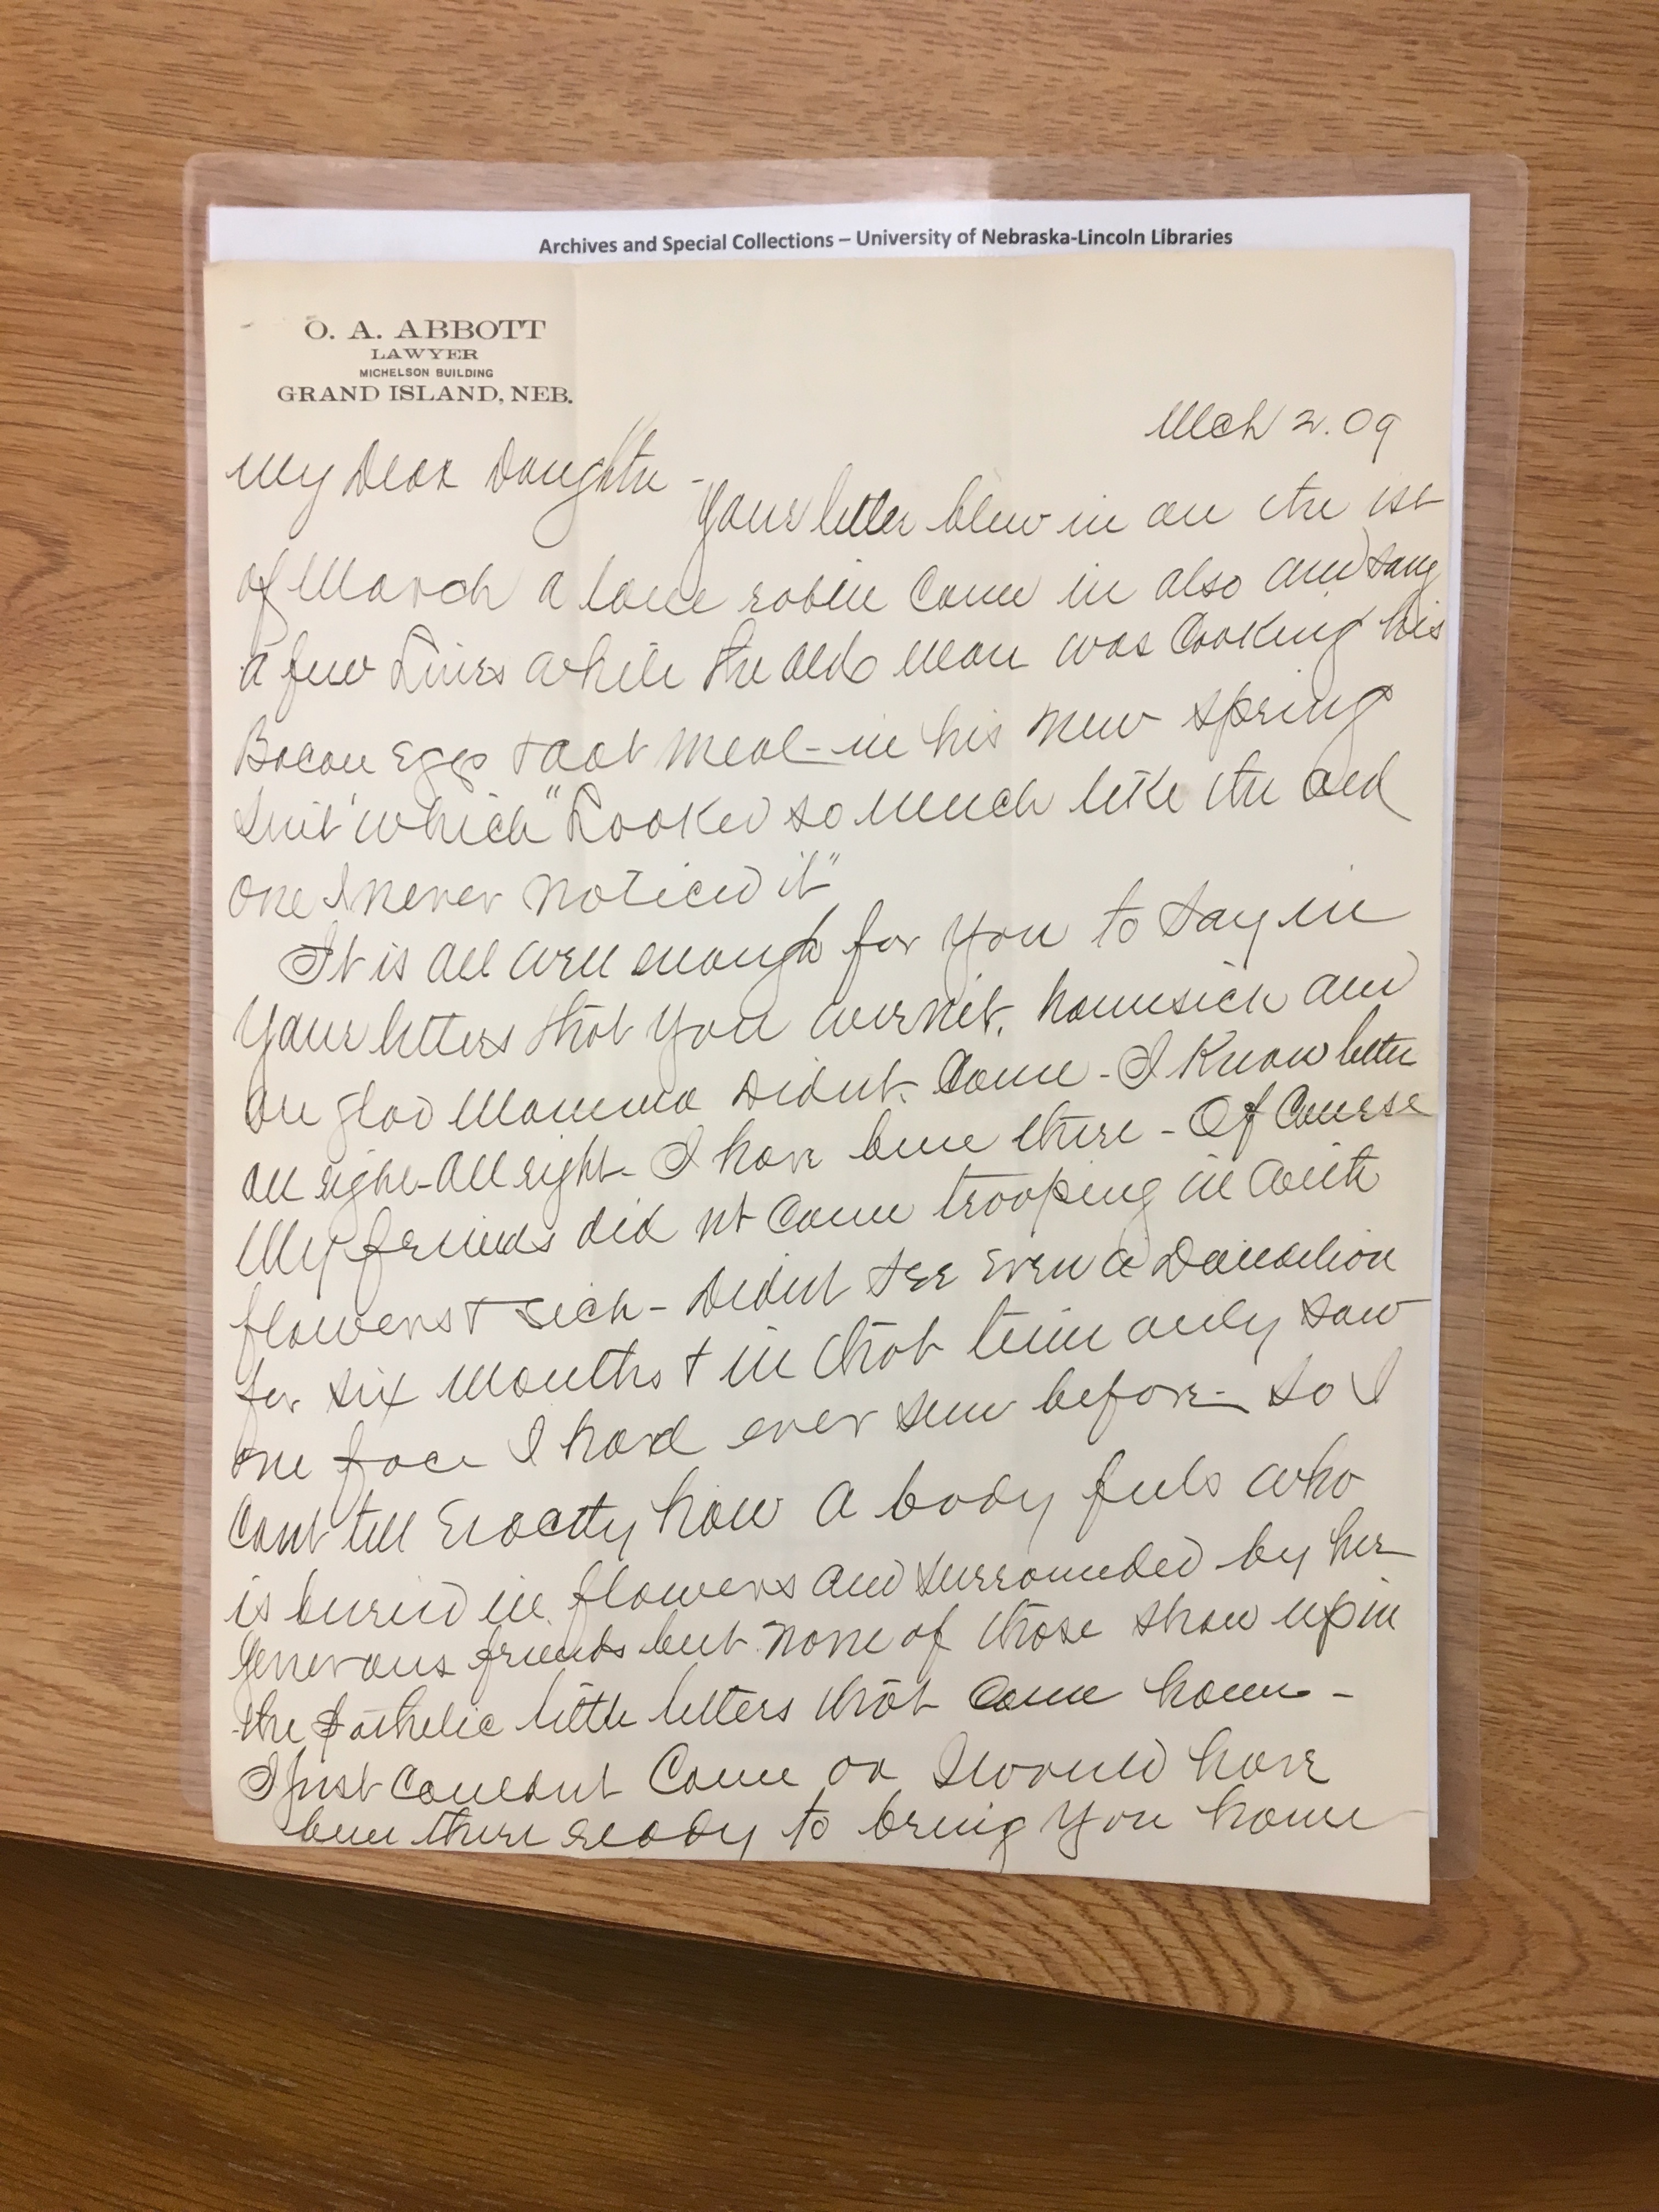 Archives and Special Collections – University of Nebraska-Lincoln Libraries
O. A. ABBOTT
LAWYER
MICHELSON BUILDING
GRAND ISLAND, NEB.
Mch 2. 09
My Dear Daughter -
Your letter blew in on the 1st
of March a lone robin came in also and sang
a few lines while the old man was cooking his
Bacon Eggs + oat meal - in his new spring
suit which "Looked so much like the old
one I never noticed it"
It is all well enough for you to say in
your letters that you wernt. homesick and
are glad Mamma didnt. come - I know better
all right - all right - I have been there - Of course
My friends did nt come trooping in with
flowers + sich - didnt see even a Dandelion
for six months + in that time only saw
one face I had ever seen before - so I
cant tell exactly how a body feels who
is buried in flowers and surrounded by her
generous friends but none of those show up in
the pathetic little letters that come home -
I just couldnt come or I would have
been there ready to bring you home